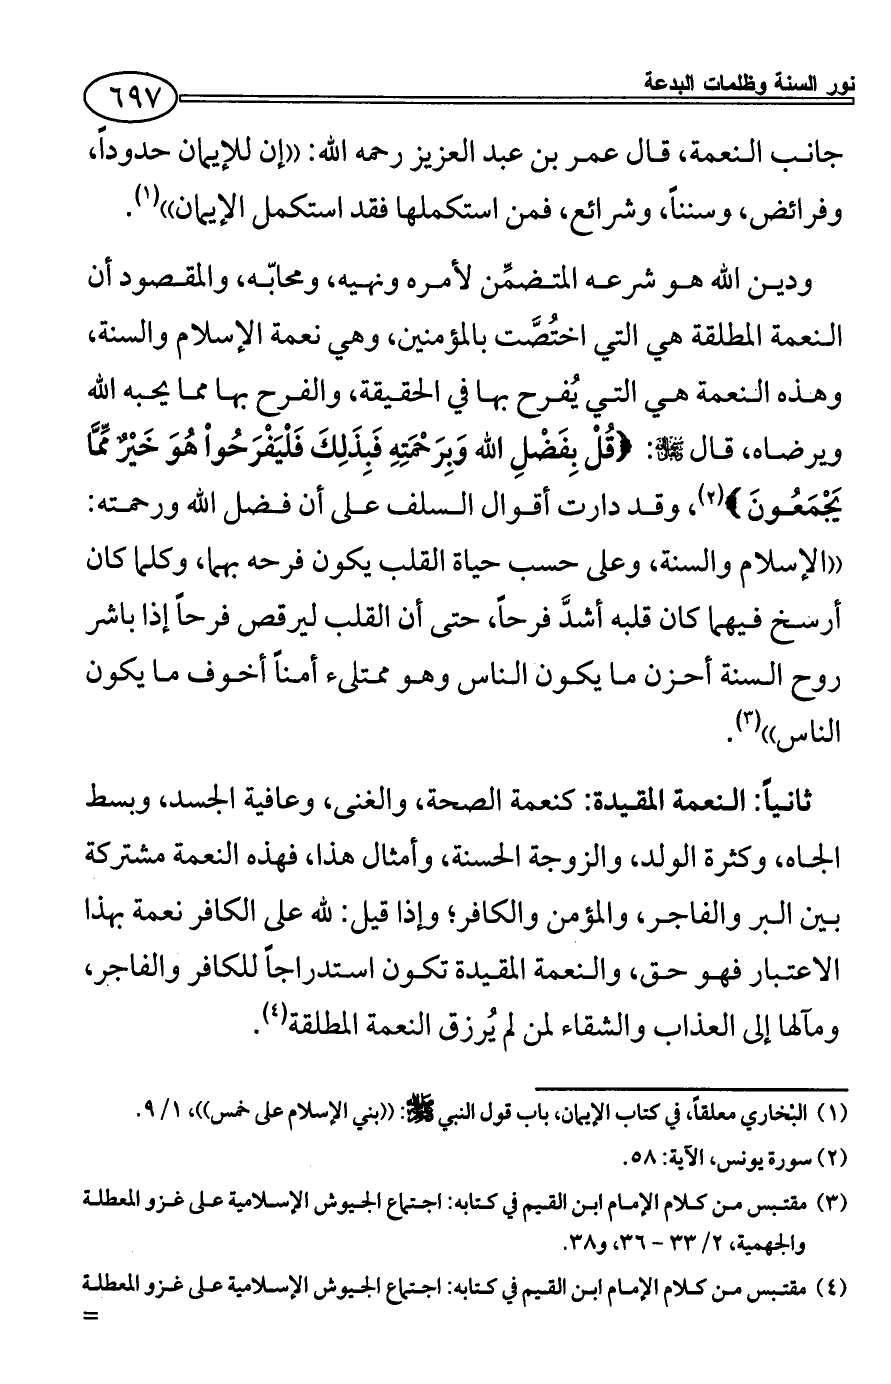 نور السنة وظلمات البدعة
٦٩٧
جانب النعمة، قال عمر بن عبد العزيز رحمه الله: ((إن للإيمان حدوداً،
وفرائض، وسنناً، وشرائع، فمن استكملها فقد استكمل الإيمان))(١).
ودين الله هو شرعه المتضمِّن لأمره ونهيه، ومحابّه، والمقصود أن
النعمة المطلقة هي التي اختُصَّت بالمؤمنين، وهي نعمة الإسلام والسنة،
وهذه النعمة هي التي يُفرح بها في الحقيقة، والفرح بها مما يحبه الله
ويرضاه، قال ﷻ: ﴿قُلْ بِفَضْلِ الله وَبِرَحْمَتِهِ فَبِذَلِكَ فَلْيَفْرَحُواْ هُوَ خَيْرٌ مِّمَّا
يَجْمَعُونَ﴾(٢)، وقد دارت أقوال السلف على أن فضل الله ورحمته:
((الإسلام والسنة، وعلى حسب حياة القلب يكون فرحه بهما، وكلما كان
أرسخ فيهما كان قلبه أشدَّ فرحاً، حتى أن القلب ليرقص فرحاً إذا باشر
روح السنة أحزن ما يكون الناس وهو ممتلىء أمناً أخوف ما يكون
الناس))(٣).
ثانياً: النعمة المقيدة: كنعمة الصحة، والغنى، وعافية الجسد، وبسط
الجاه، وكثرة الولد، والزوجة الحسنة، وأمثال هذا، فهذه النعمة مشتركة
بين البر والفاجر، والمؤمن والكافر؛ وإذا قيل: لله على الكافر نعمة بهذا
الاعتبار فهو حق، والنعمة المقيدة تكون استدراجاً للكافر والفاجر،
ومآلها إلى العذاب والشقاء لمن لم يُرزق النعمة المطلقة(٤).
(١) البخاري معلقاً، في كتاب الإيمان، باب قول النبي ﷺ: ((بني الإسلام على خمس))، ١/ ٩.
(٢) سورة يونس، الآية: ٥٨.
(٣) مقتبس من كلام الإمام ابن القيم في كتابه: اجتماع الجيوش الإسلامية على غزو المعطلة
والجهمية، ٢/ ٣٣ – ٣٦، و٣٨.
(٤) مقتبس من كلام الإمام ابن القيم في كتابه: اجتماع الجيوش الإسلامية على غزو المعطلة
=